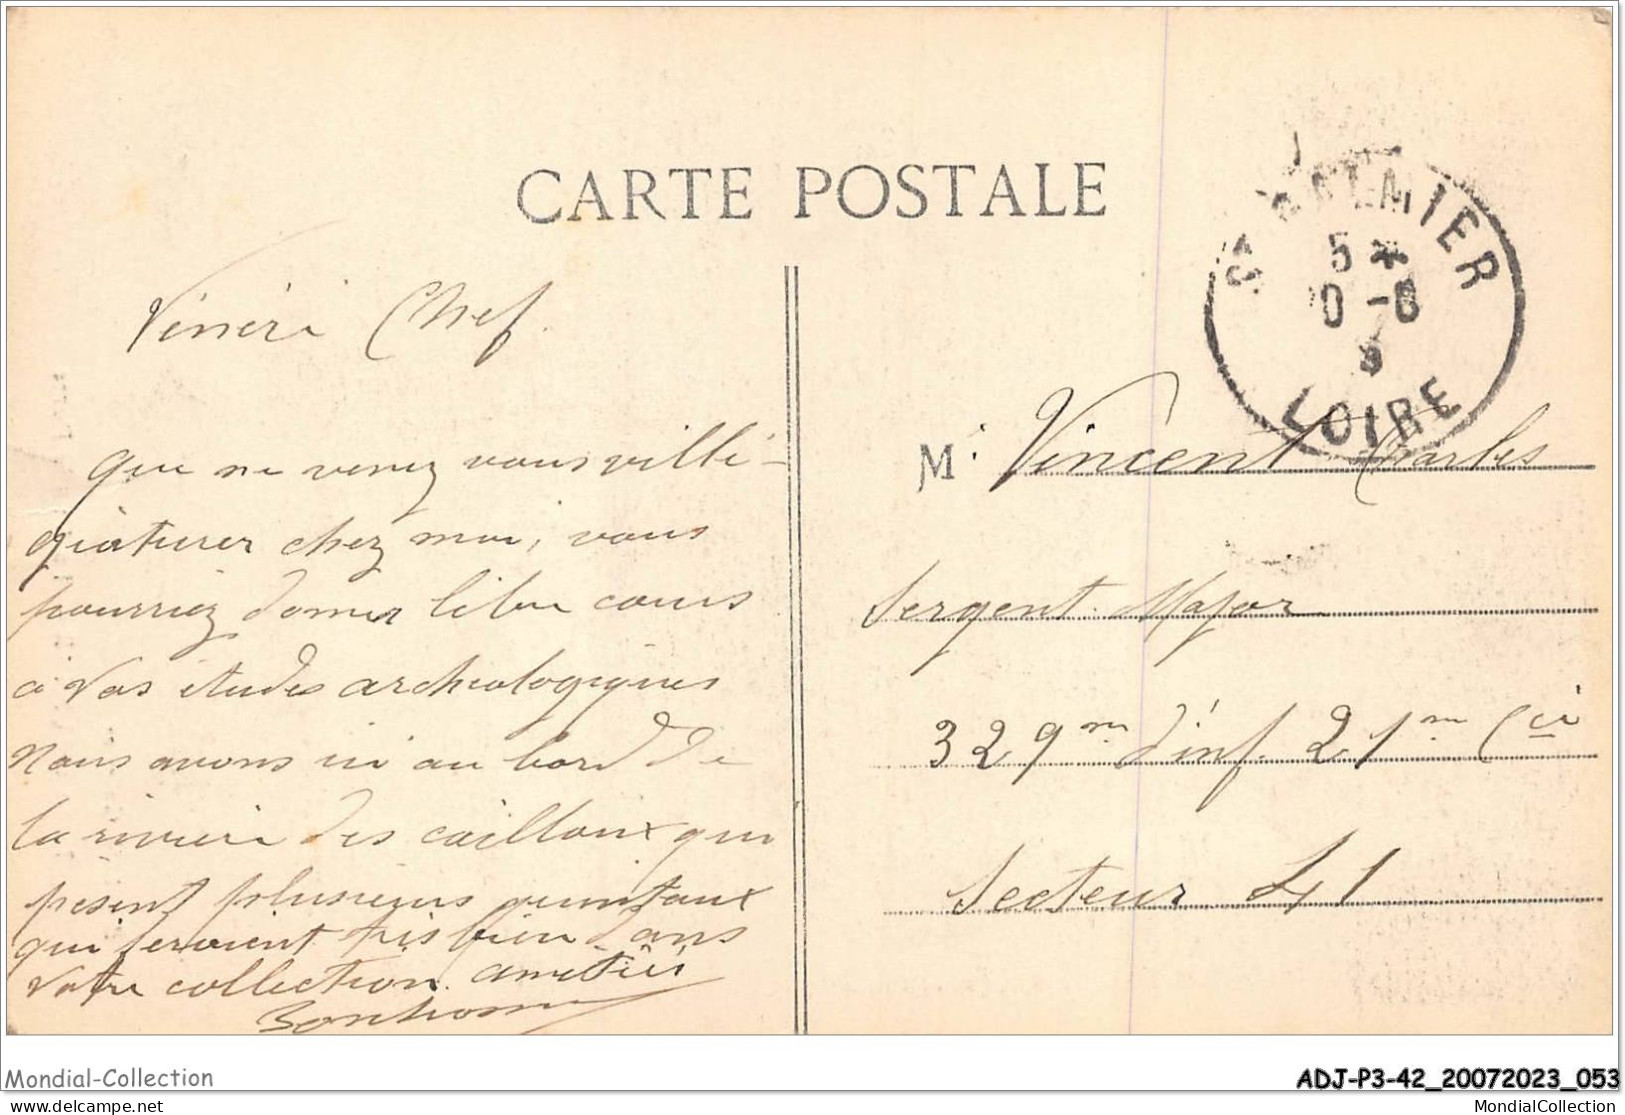 CARTE POSTALE
Vénéré Chef.
que ne venez vous villé-
giaturer chez moi, vous
pourriez donner libre cours
à vos études archéologiques
Nous avons ici au bord de
la rivière des cailloux qui
pèsent plusieurs quintaux
qui feraient très bien dans
votre collection. amitiés
Bonhomme
GALMIER
5 *
0 -8
LOIRE
M. Vincent Charles
Sergent Major
329me d'inf. 21me Cie
Secteur 41
Mondial-Collection
delcampe.net
ADJ-P3-42_20072023_053
MondialCollection